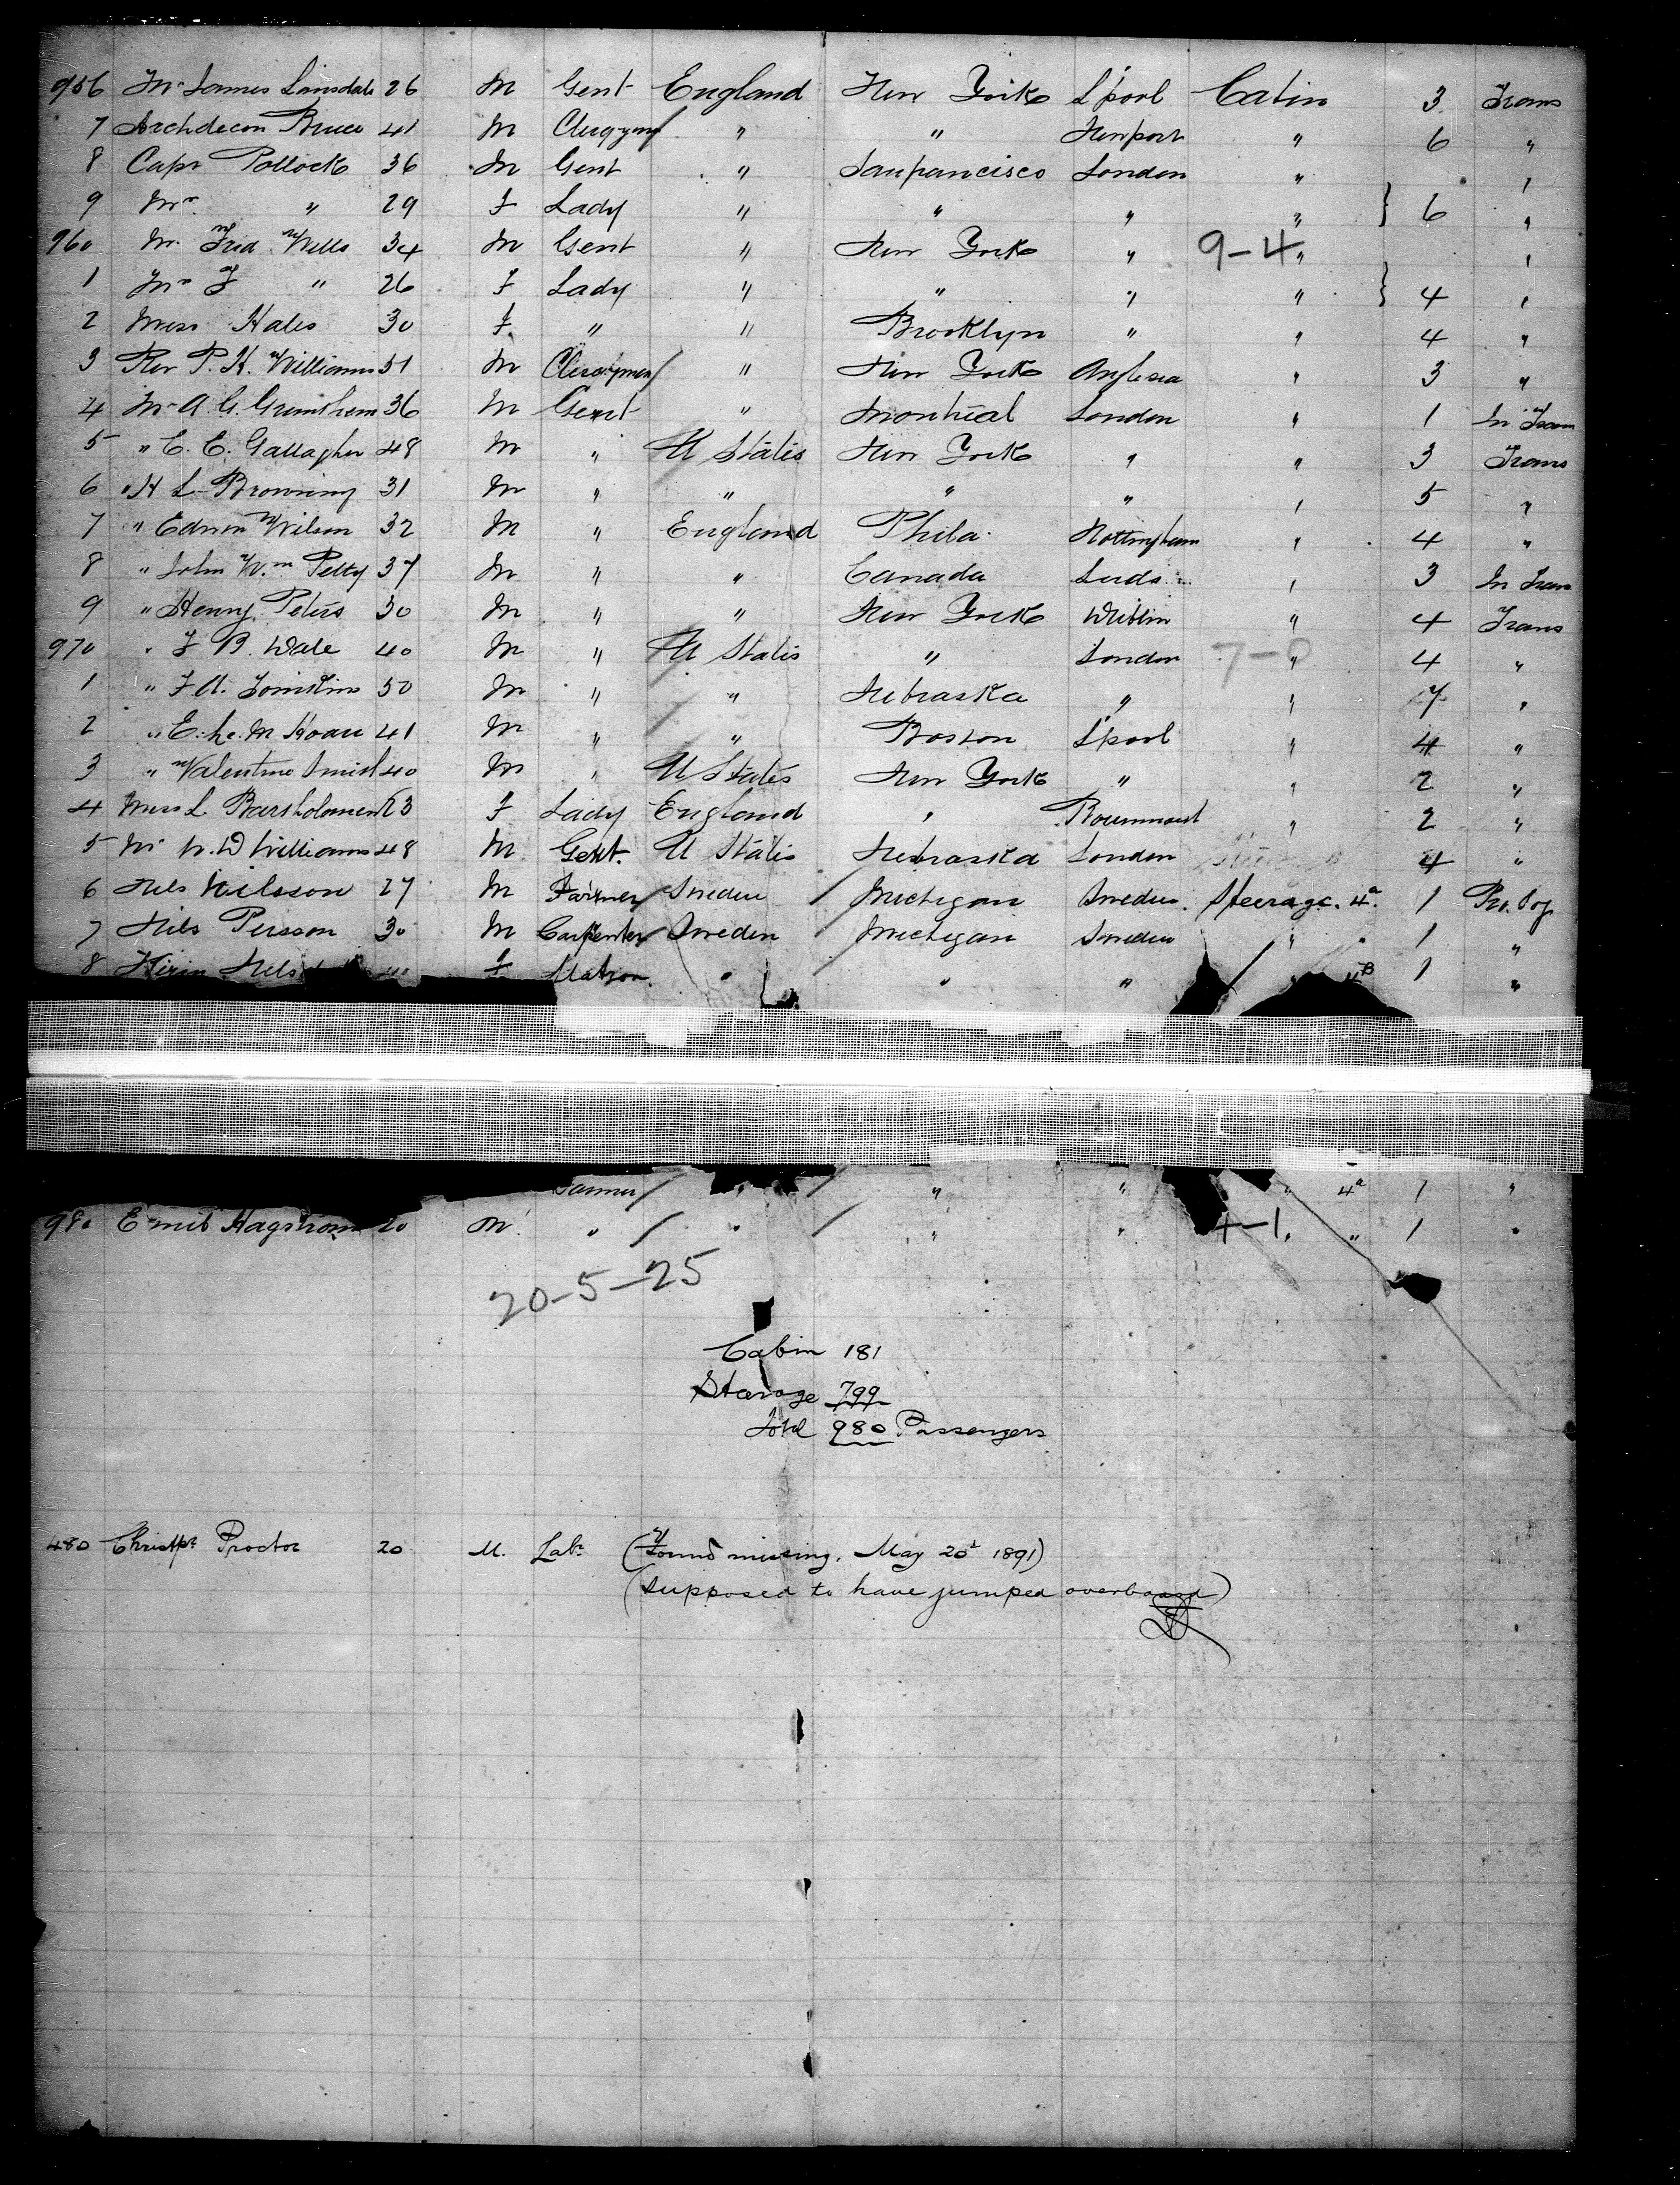 956 Mr James Lonsdale 26 M Gent England New York L'pool Cabin 3 Trans
7 Archdecon Bruce 41 M Clergyman " " Newport " 6 "
8 Capt Pollock 36 M Gent " Sanfrancisco London " "
9 Mrs " 29 F Lady " " " " } 6 "
960 Mr Fred Wells 34 M Gent " New York " 9-4 " "
1 Mrs F " 26 F Lady " " " " } 4 "
2 Miss Hales 30 F " " Brooklyn " " 4 "
3 Rev P. H. Williams 51 M Clergyman " New York Anglesea " 3 "
4 Mr A. G. 36 M Gent " Montreal London " 1 In Trans
5 " C. E. Gallagher 48 M " U States New York " " 3 Trans
6 " H L Browning 31 M " " " " " 5 "
7 " Edwin Wilson 32 M " England Phila. Nottingham " 4 "
8 " John Wm Petty 37 M " " Canada Leeds " 3 In Trans
9 " Henry Peters 30 M " " New York Dublin " 4 Trans
970 " F B. Dale 40 M " U States " London 7-0 " 4 "
1 " F A. 50 M " " Nebraska " " 7 "
2 " E. 41 M " " Boston L'pool " 4 "
3 " Valentine Smith 40 M " U States New York " " 2 "
4 Miss L. Bartholomew 23 F Lady England " " 2 "
5 Mr W. D Williams 48 M Gent. U States Nebraska London 4 "
6 Nels Nilsson 27 M Farmer Sweden Michigan Sweden. Steerage. 4a 1
7 Nils Persson 30 M Carpenter Sweden Michigan Sweden " " 1 "
8 F Matron. " " " " 4B 1 "
Farmer " " " " 4a 1 "
980 Emil Hagstrom 20 M. " " " " 4-1. " 1 "
20-5-25
Cabin 181
Steerage 799
Total 980 Passengers
480 Christpr Proctor 20 M. Labr (Found missing, May 20t 1891)
(Supposed to have jumped overboard)